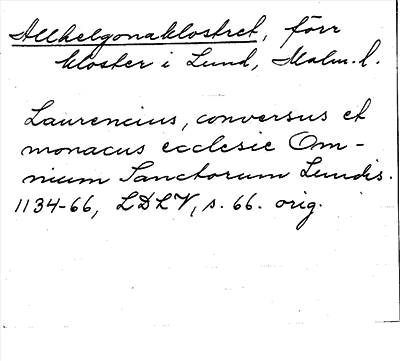 Allhelgonaklostret, förr
kloster i Lund, Malm. l.
Laurencius, conversus et
monacus ecclesie Om-
nium Sanctorum Lundis.
1134-66, LDLV, s. 66. orig.